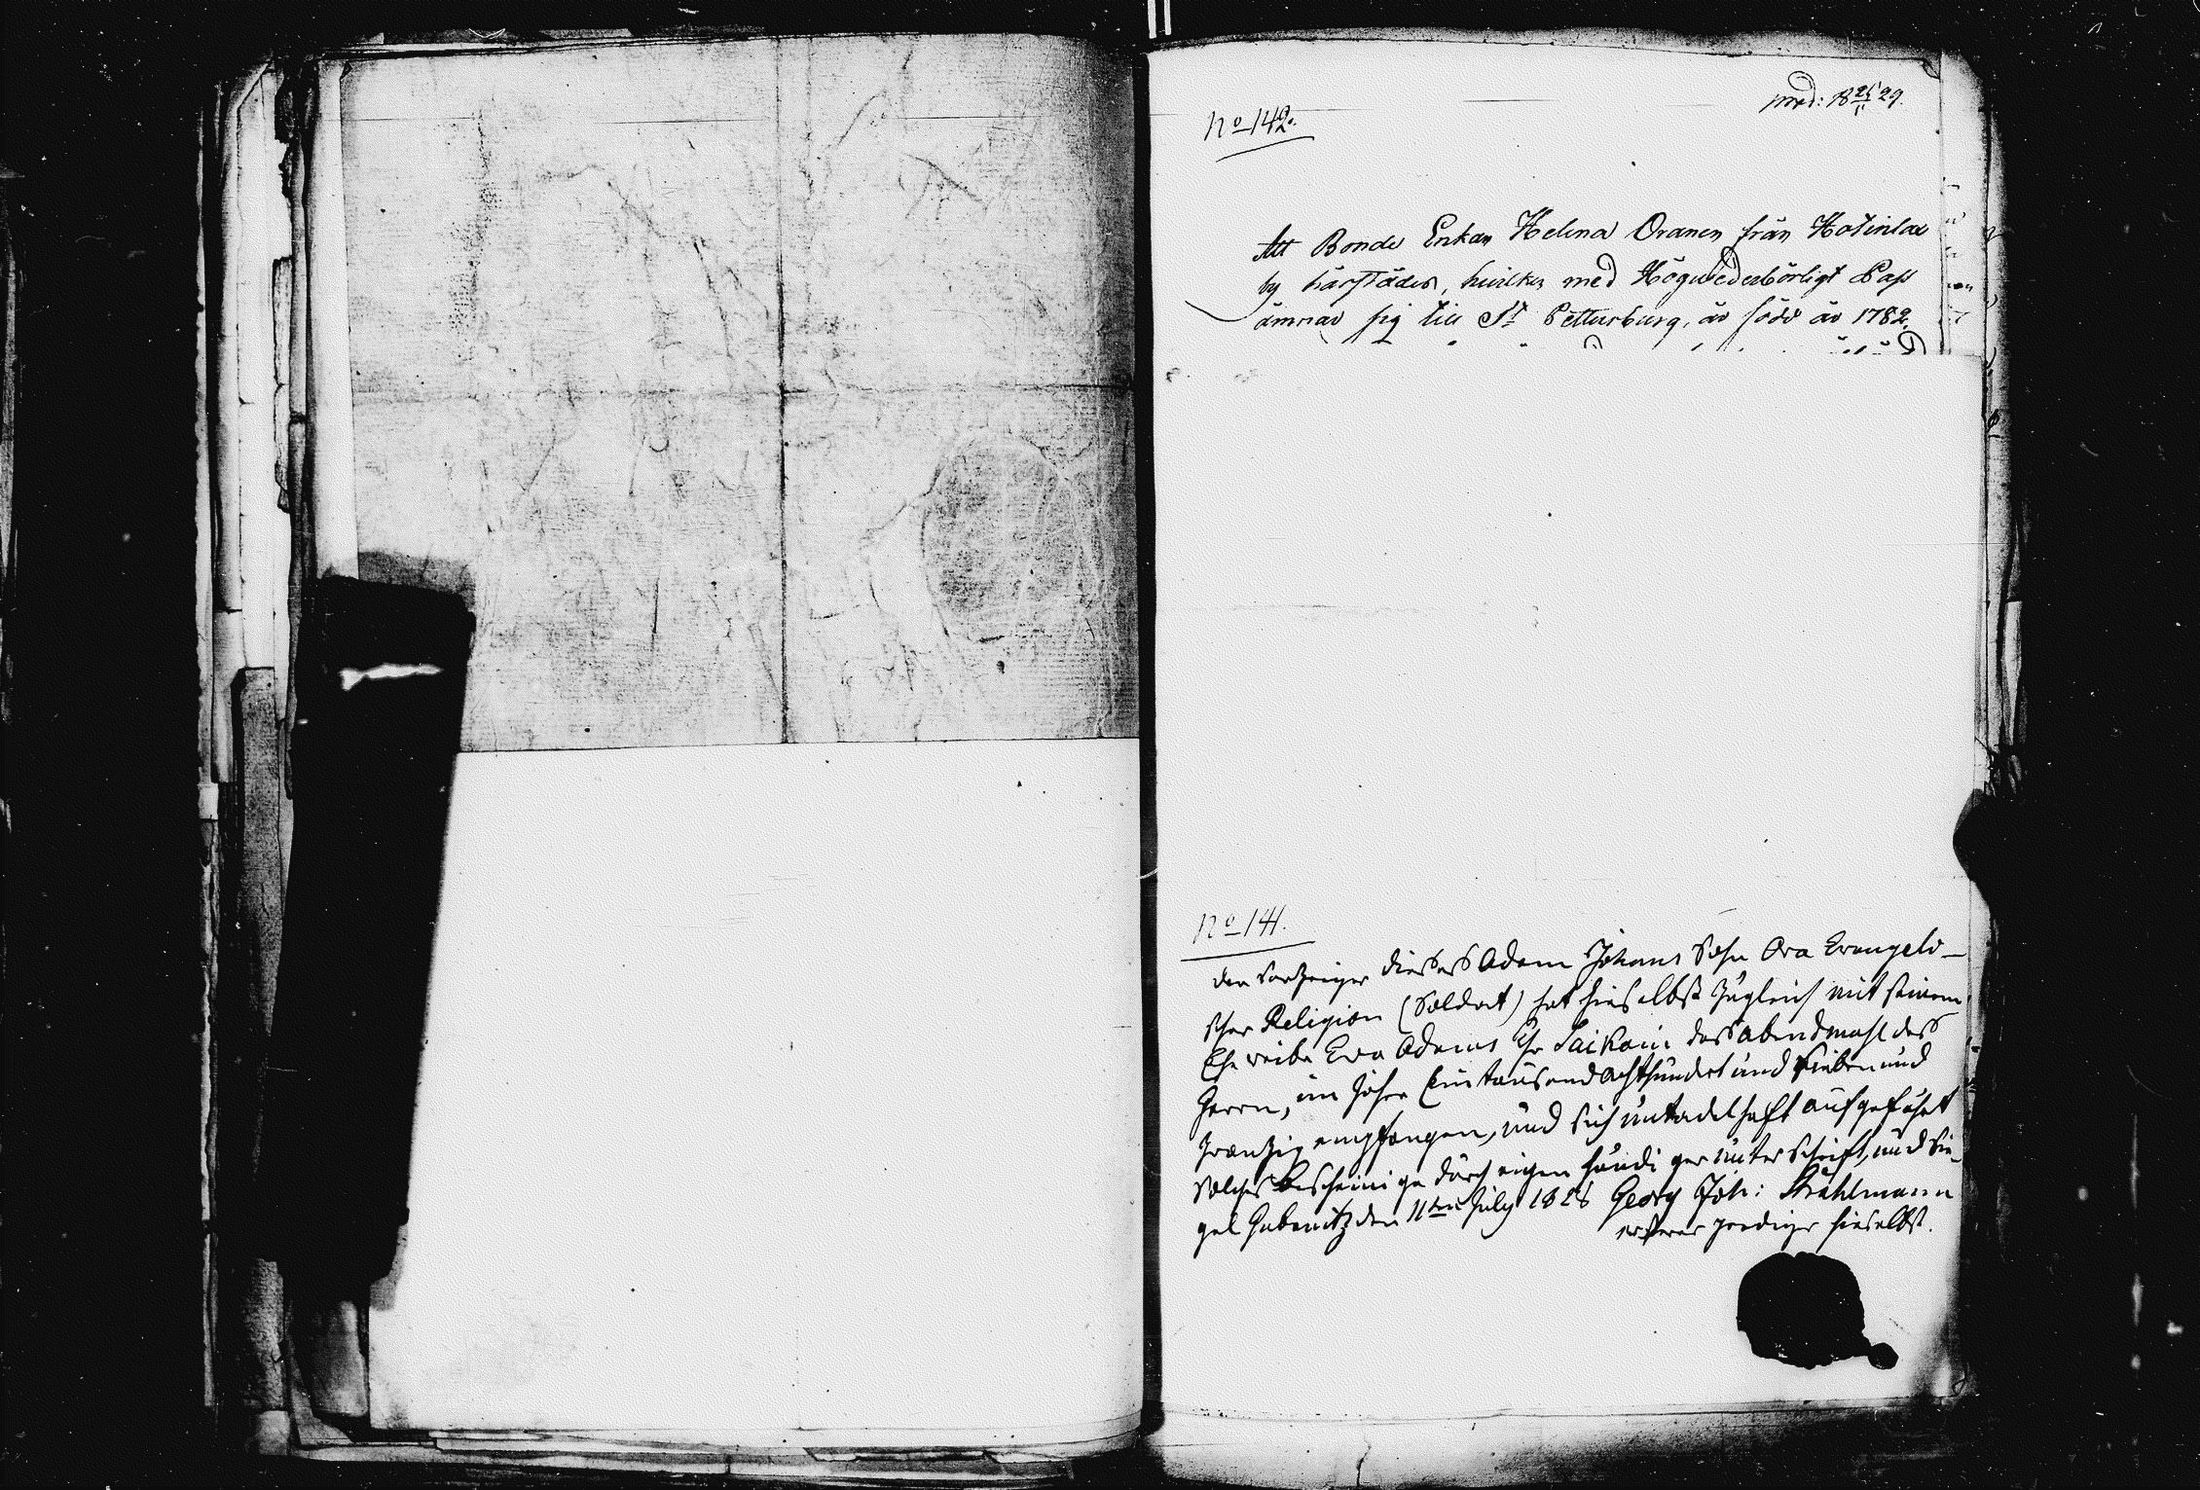 No 142.
prod: 18 25/11 29.
Att Bonde Enkan Helena Oranen från Hatinlax
by härstädes, hvilken med Högvederbörligt Pass
ämnar sig till St Pettersburg, är född år 1782.
No 141.
Der Vorzeiger dieses Adam Johans Sohn Ora Evangeli-
scher Religion (Soldat) hat hieselbst zugleich mit seinem
Ehe weibe Eva Adams Tr Taikain das abendmahl des
Herrn, im Jahre Eintausendachthundert und sieben und
zwanzig empfangen, und sich untadelhaft aufgeführt
solches bescheinige durch eigen händi ger unter schrift, und Sie-
gel Gubanitz den 11ten July 1828 Georg Joh: Strählmann
prediger hieselbst.